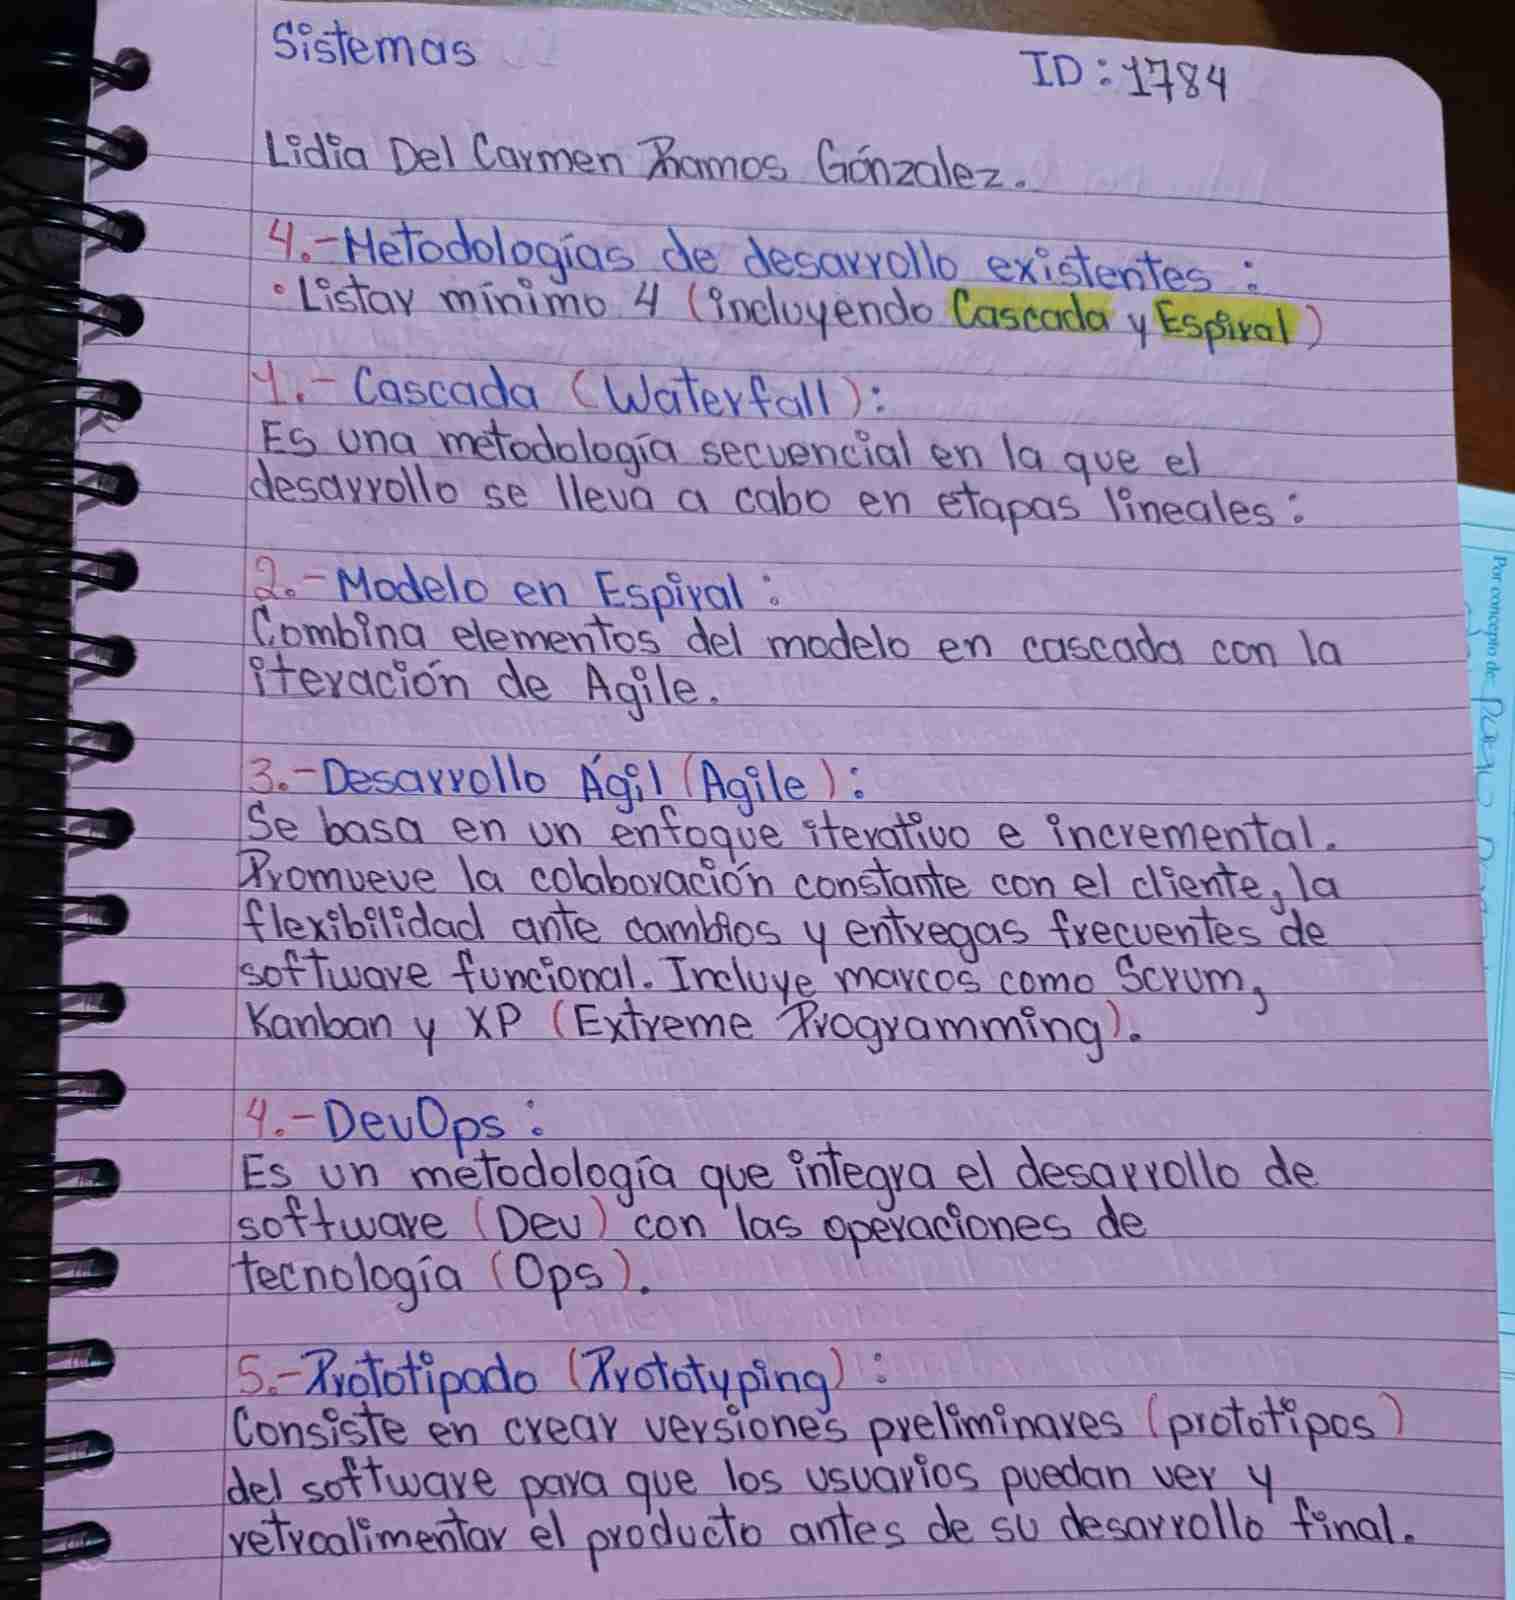 Sistemas
ID: 1784
Lidia Del Carmen Ramos Gónzalez.
4.-Metodologías de desarrollo existentes:
•Listar mínimo 4 (incluyendo Cascada y Espiral)
1.- Cascada (Waterfall):
Es una metodología secuencial en la que el
desarrollo se lleva a cabo en etapas lineales:
2.-Modelo en Espiral:
Combina elementos del modelo en cascada con la
iteración de Agile.
3.-Desarrollo Ágil (Agile):
Se basa en un enfoque iterativo e incremental.
Promueve la colaboración constante con el cliente, la
flexibilidad ante cambios y entregas frecuentes de
software funcional. Incluye marcos como Scrum,
Kanban y XP (Extreme Programming).
4.-DevOps:
Es un metodología que integra el desarrollo de
software (Dev) con las operaciones de
tecnología (Ops).
5.-Prototipado (Prototyping):
Consiste en crear versiones preliminares (prototipos)
del software para que los usuarios puedan ver y
retroalimentar el producto antes de su desarrollo final.
Por concepto de: